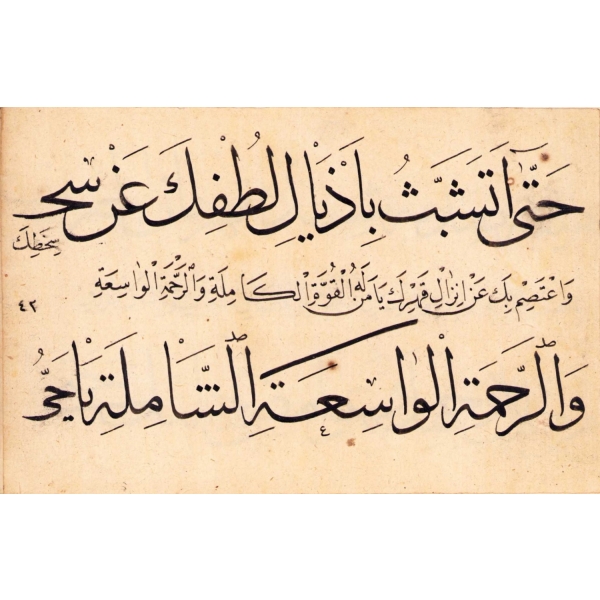 حَتَّى اَتَشَبَّثُ بِاَذْيَالِ لُطْفِكَ عَنْ سخ
سخطك
وَاعْتَصِمُ بِكَ عَنْ اِنْزَالِ قَهْرِكَ يَا مَنْ لَهُ الْقُوَّةُ الْكَامِلَةِ وَالرَّحْمَةِ الْوَاسِعَةِ
٤٢
وَالرَّحْمَةِ الْوَاسِعَةِ الشَّامِلَةِ يَا حَيُّ
٤